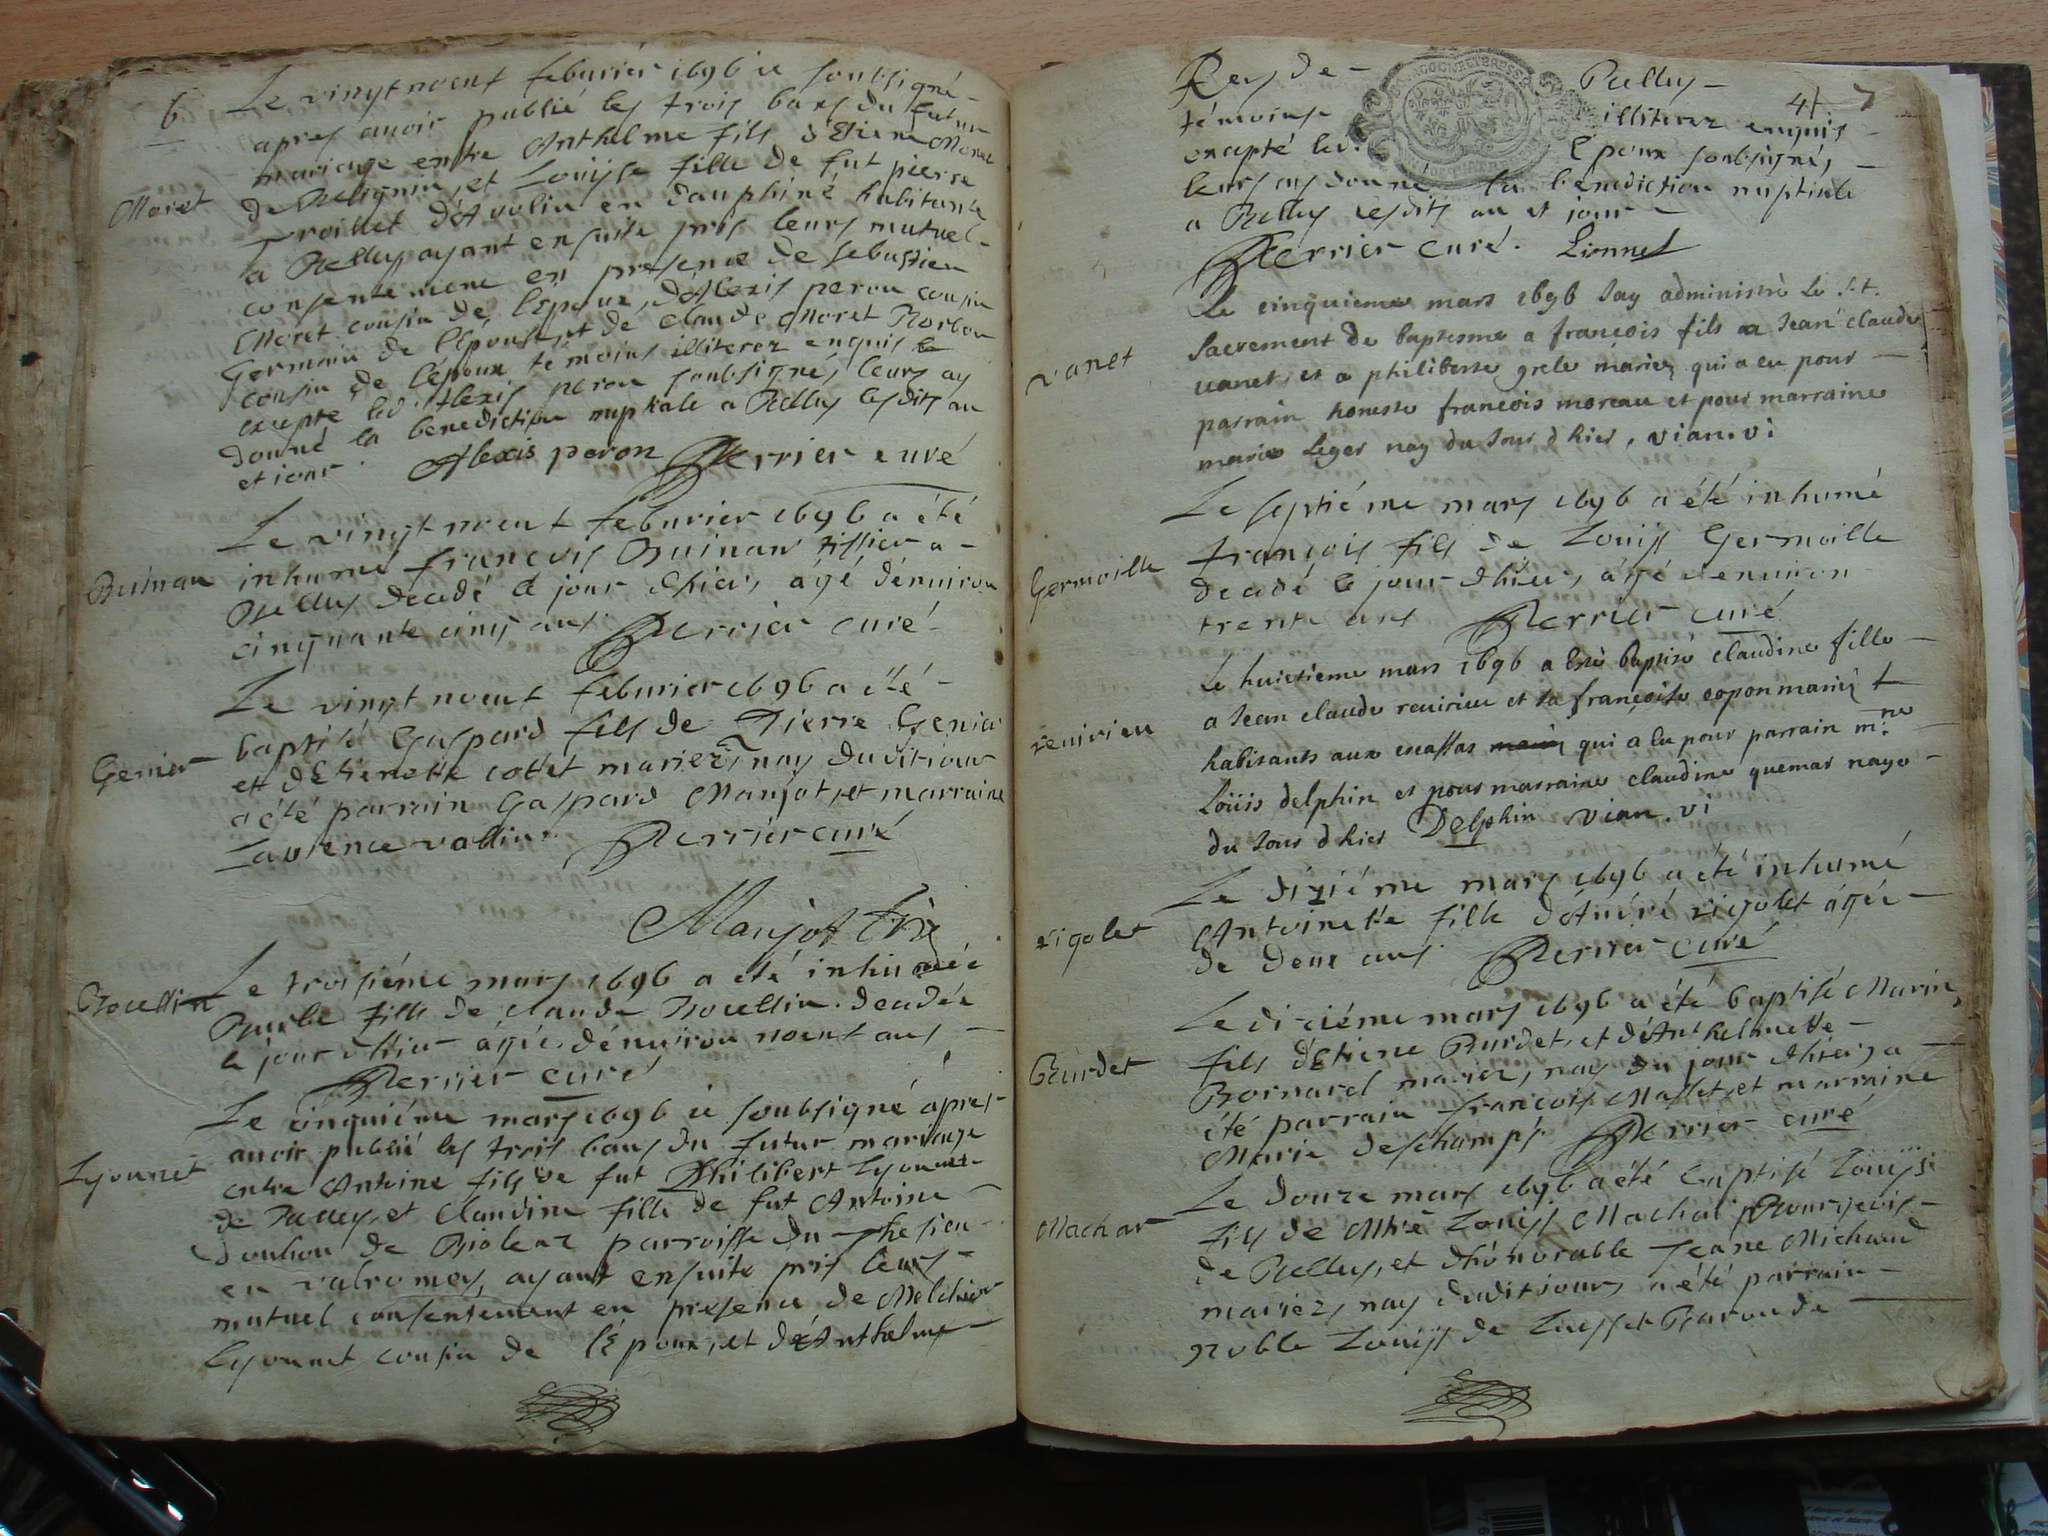 6
Le vingt noeuf feburier 1696 ie soubsigné
apres auoir publié les trois bans du futur
mariage entre Anthelme fils d'Etiene Moret
de Peugnin, et Louïse fille de fut pierre
Troillet d'Auolin en dauphiné habitante
a Belley ayant ensuite pris leurs mutuel
consentement en presence de sebastien
Moret cousin de l'époux, d'Alexis peron cousin
Germain de l'épouse, et de claude Moret
cousin de l'époux témoins illiterez enquis
excepté led. Alexis peron soubsigné, leurs ay
donné la benediction nuptiale a Belley lesdits an
et iour. Alexis peron Perrier curé
Moret
Le vingt noeuf feburier 1696 a été
inhumé françois Buinan tissier a
Belley decedé le jour d'hier, âgé d'enuiron
cinquante cinq ans Perrier curé
Buinan
Le vingt noeuf feburier 1696 a été
baptisé Gaspard fils de Pierre Genier
et d'Etienette cottet mariez, nay dudit iour
a été parrain Gaspard Manjot, et marraine
Laurence vallin. Perrier curé
Genier
Manjot
Le troisiéme mars 1696 a été inhumée
fille de claude Boucllin decedée
le jour d'hier âgée d'enuiron noeuf ans
Perrier curé
Le cinquiéme mars 1696 ie soubsigné apres
auoir publié les trois bans du futur mariage
entre Antoine fils de fut Philibert Lyonnet
de Belley, et Claudine fille de fut Antoine
de parroisse du
en valromey, ayant ensuite pris leurs
mutuel consentement en presence de Melchior
Lyonnet cousin de l'époux, et d'Anthelme
Lyonnet
Rey de Belley
47 7
témoins illiterez enquis
excepté led. Epoux soubsigné,
leurs ay donné la benediction nuptiale
a Belley lesdits an et jour
Perrier curé. Lionnet
Le cinquieme mars 1696 Jay administré le St.
sacrement de baptesme a françois fils a Jean claude
vanet, et a philiberte grele mariez qui a eu pour
parrain honeste françois moreau et pour marraine
marie leger nay du Jour d hier, vian. vi
vanet
Le septiéme mars 1696 a été inhumé
françois fils de Louïs Germoille
decedé le jour d'hier, âgé d'enuiron
trente ans Perrier curé
Germoille
Le huictieme mars 1696 a esté baptisé claudine fille
a Jean claude reuirieu et a françoise copon mariez
habitants aux qui a eu pour parrain mre
Loüis delphin et pour marraine claudine quemar naye
du Jour d hier Delphin vian. vi
reuirieu
Le diziéme mars 1696 a été inhumé
Antoinette fille d'André rigolet âgée
de deux ans Perrier curé
rigolet
Le diziéme mars 1696 a été baptisé Marin
fils d'Etiene Burdet, et d'Anthelmette
Bornarel mariez, nay du jour d'hier, a
été parrain françois Mallet, et marraine
Marie deschamps. Perrier curé
Burdet
Le douze mars 1696 a été baptisé Louïs
fils de Mtre Louïs Machar Bourgeois
de Belley, et d'honorable Jeane Michaud
mariez, nay dudit iour, a été parrain
Noble Louïs de Baron de
Machar